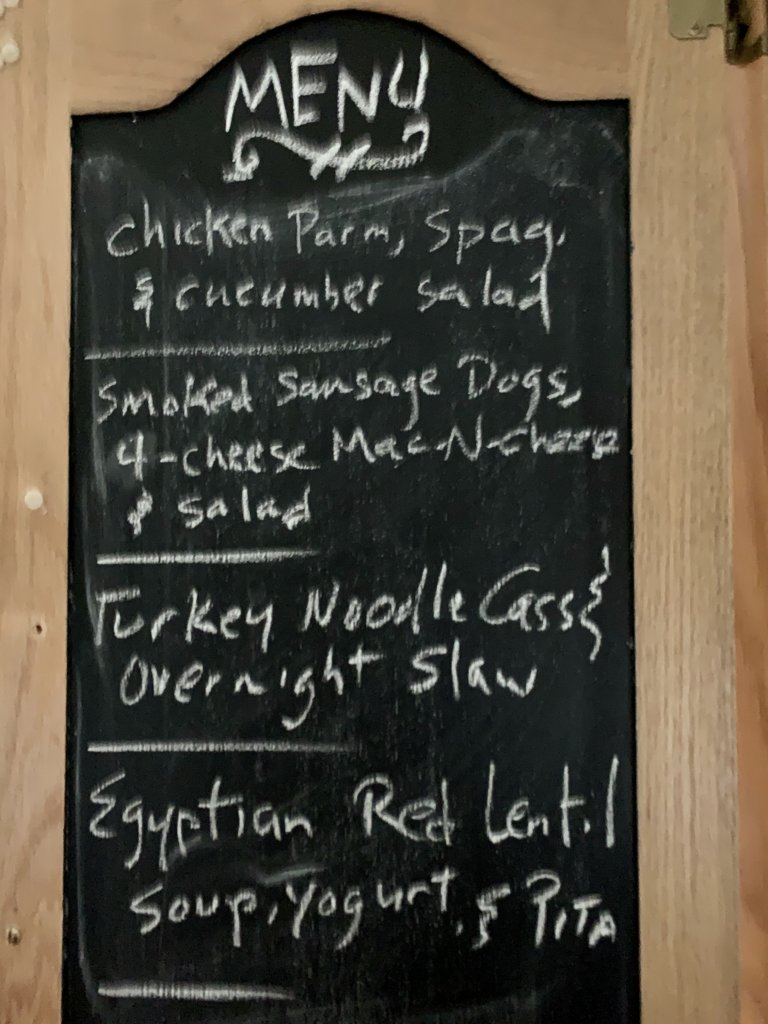 MENU
Chicken Parm, Spag,
& cucumber salad
Smoked Sausage Dogs,
4-cheese Mac-N-Cheese
& salad
Turkey Noodle Cass &
Overnight Slaw
Egyptian Red Lentil
Soup, Yogurt, & PITA